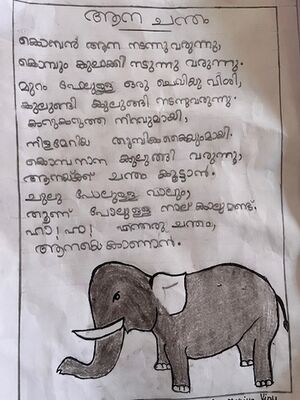 ആന ചന്തം
കൊമ്പൻ ആന നടന്നു വരുന്നു,
കൊമ്പും കുലുക്കി നടന്നു വരുന്നു.
മുറം പോലുള്ള ഒരു ചെവിയു വീശി,
കുലുങ്ങി കുലുങ്ങി നടന്നുവരുന്നു.
കറുകറുത്ത നിറവുമായി,
നീളമേറിയ തുമ്പികൈയുമായി.
കൊമ്പനാന കുലുങ്ങി വരുന്നു,
ആനയ്ക്ക് ചന്തം കൂട്ടാൻ.
ചൂലു പോലുള്ള വാലും,
തൂണ് പോലുള്ള നാല് കാലുമുണ്ട്.
ഹാ! ഹാ! എന്തൊരു ചന്തം,
ആനയെ കാണാൻ.